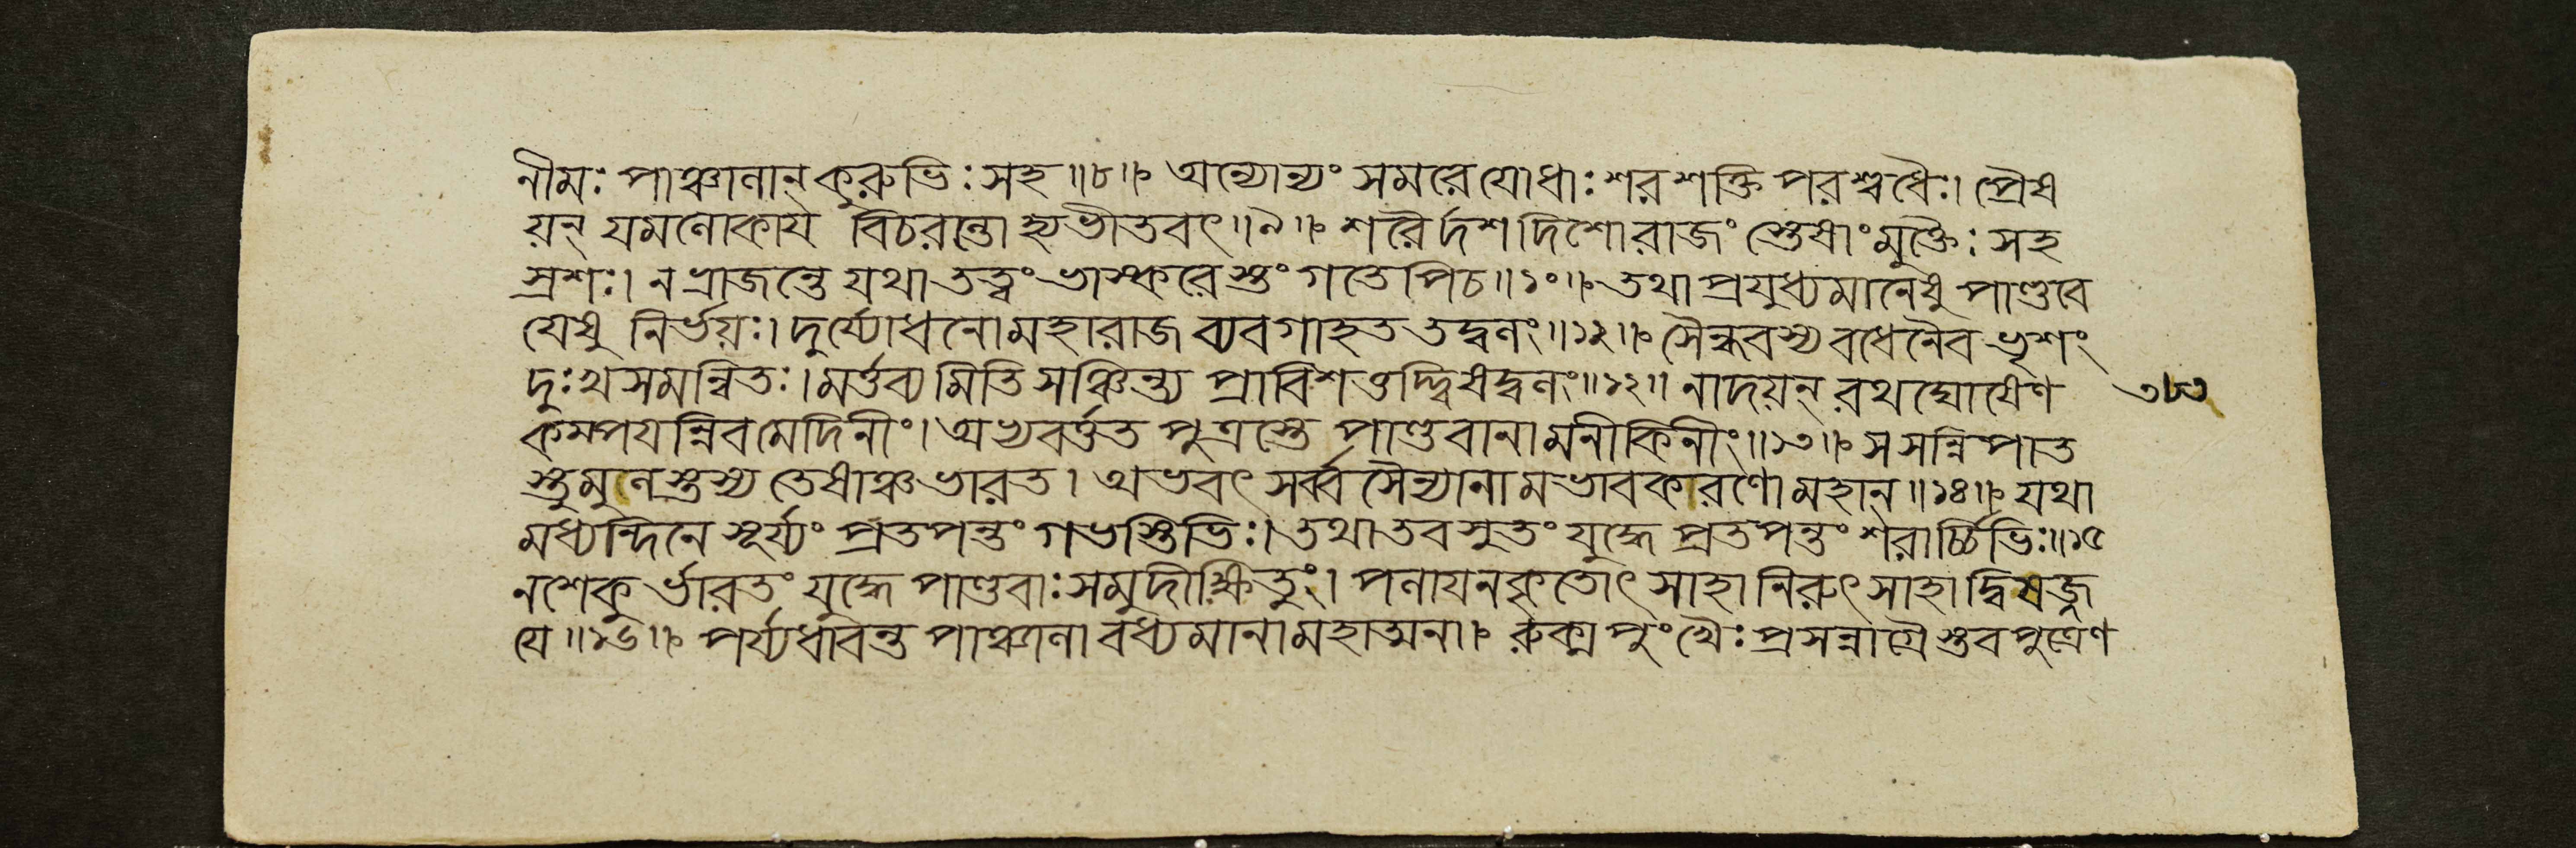 লীমঃ পাঞ্চালান্ কুরুভিঃ সহ॥৮॥ অন্যোন্যং সমরে যোধাঃ শর শক্তি পরশ্বধৈঃ। প্রৈষ
য়ন্ যমলোকায বিচরন্তো হ্যভীতবৎ॥৯॥ শরৈর্দশ দিশো রাজং স্তেষাং মুক্তৈঃ সহ
স্রশঃ। ন ভ্রাজন্তে যথা তত্ত্বং ভাস্করেস্তং গতেপিচ॥১০॥ তথা প্রযুধ্যমানেষু পাণ্ডবে
যেষু নির্ভয়ঃ। দুর্য্যোধনো মহারাজ ব্যবগাহত তদ্বলং॥১১॥ সৈন্ধবস্য বধেনৈব ভৃশং
দুঃখ সমন্বিতঃ। মর্ত্তব্য মিতি সঞ্চিন্ত্য প্রাবিশত্তদ্দ্বিষদ্বলং॥১২॥ নাদয়ন্ রথঘোষেণ
কম্পযন্নিব মেদিনীং। অভ্যবর্ত্তত পুত্রস্তে পাণ্ডবানামনীকিনীং॥১৩॥ স সন্নিপাত
স্তুমুলস্তস্য তেষাঞ্চ ভারত। অভবৎ সর্ব্বসৈন্যানামভাবকারণো মহান্॥১৪॥ যথা
মধ্যন্দিনে সূর্য্যং প্রতপন্তং গভস্তিভিঃ। তথা তব সুতং যুদ্ধে প্রতপন্তং শরার্চ্চিভিঃ॥১৫
ন শেকুর্ভারতং যুদ্ধে পাণ্ডবাঃ সমুদীক্ষিতুং। পলাযনকৃতোৎসাহা নিরুৎসাহা দ্বিষজ্জ
যে॥১৬॥ পর্য্যধাবন্ত পাঞ্চালা বধ্যমানা মহাত্মনা॥ রুক্মপুংখৈঃ প্রসন্নাগ্রৈস্তব পুত্রেণ
৩৮৩